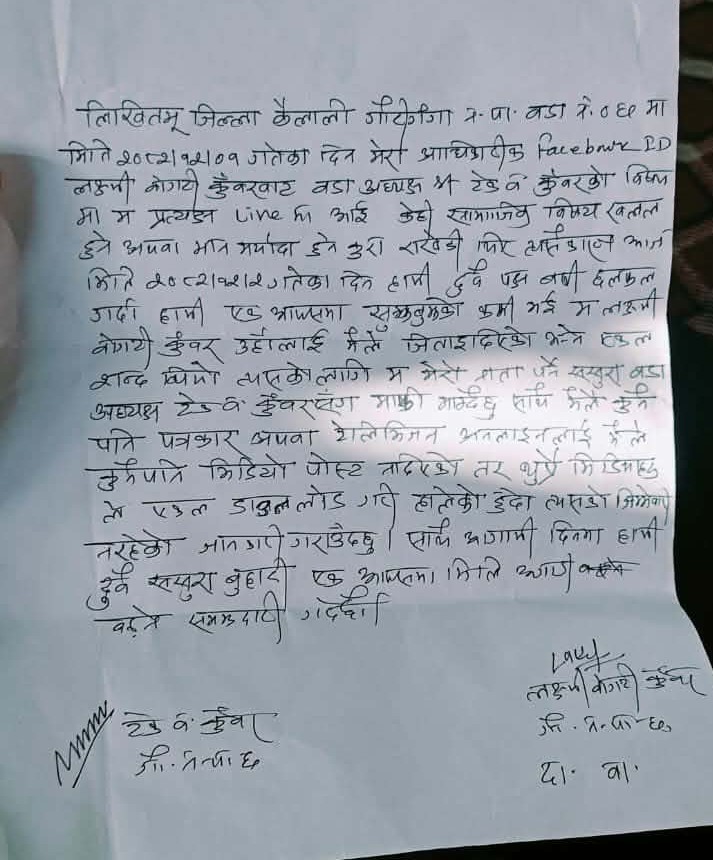 लिखितम् जिल्ला कैलाली गौरीगंगा न.पा. वडा नं. ०६ मा
मिति २०८२।१२।०१ गतेका दिन मेरो आधिकारीक Facebook ID
लक्ष्मी बोगटी कुँवरबाट वडा अध्यक्ष टेक ब. कुँवरको विषय
मा म प्रत्यक्ष Live मा आई केही सामाजिक विषय खलल
हुने अथवा मान मर्यादा हुने कुरा राखेकी थिए आज
मिति २०८२।१२।२ गतेका दिन हामी दुवै पक्ष बसी छलफल
गर्दा हामी एक आपसमा सुझबुझको कमी भई म लक्ष्मी
बोगटी कुँवर उहाँलाई मैले जिताइदिएको भन्ने एकल
शब्द थियो त्यसको लागि म मेरो नाता पर्ने ससुरा वडा
अध्यक्ष टेक ब. कुँवरसंग माफी माग्दछु साथै मैले कुनै
पनि पत्रकार अथवा टेलिभिजन अनलाइनलाई मैले
कुनैपनि भिडियो पोस्ट नदिएको तर थुप्रै मिडियाहरु
ले एकल डाउनलोड गरी हालेको हुँदा त्यसको जिम्मेवारी
नरहेको जानकारी गराउँदछु। साथै आगामी दिनमा हामी
दुवै ससुरा बुहारी एक आपसमा मिलि अगाडी
बढ्ने समझदारी गर्दछौं।
लक्ष्मी बोगटी कुँवर
टेक ब. कुँवर
गौ. न.पा ६
गौ. न.पा ६